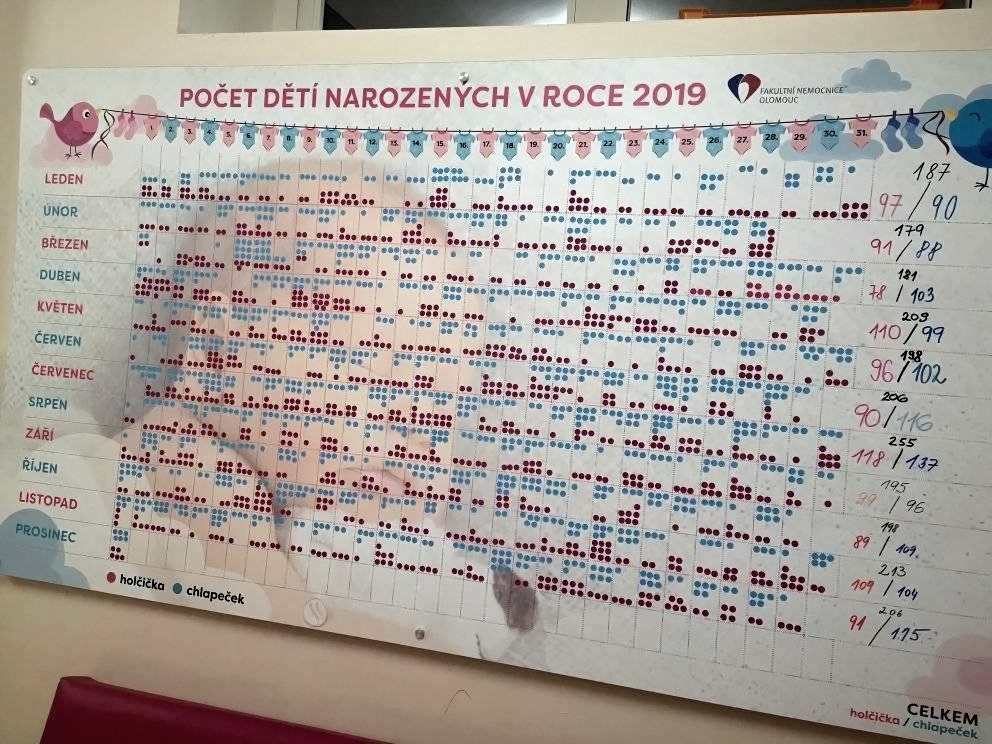 POČET DĚTÍ NAROZENÝCH V ROCE 2019
FAKULTNÍ NEMOCNICE
OLOMOUC
1. 2. 3. 4. 5. 6. 7. 8. 9. 10. 11. 12. 13. 14. 15. 16. 17. 18. 19. 20. 21. 22. 23. 24. 25. 26. 27. 28. 29. 30. 31.
LEDEN 187
97 / 90
ÚNOR 179
91 / 88
BŘEZEN 181
78 / 103
DUBEN 209
110 / 99
KVĚTEN 198
96 / 102
ČERVEN 206
90 / 116
ČERVENEC 255
118 / 137
SRPEN 195
99 / 96
ZÁŘÍ 198
89 / 109
ŘÍJEN 213
109 / 104
LISTOPAD 206
91 / 115
PROSINEC
holčička chlapeček
CELKEM
holčička / chlapeček